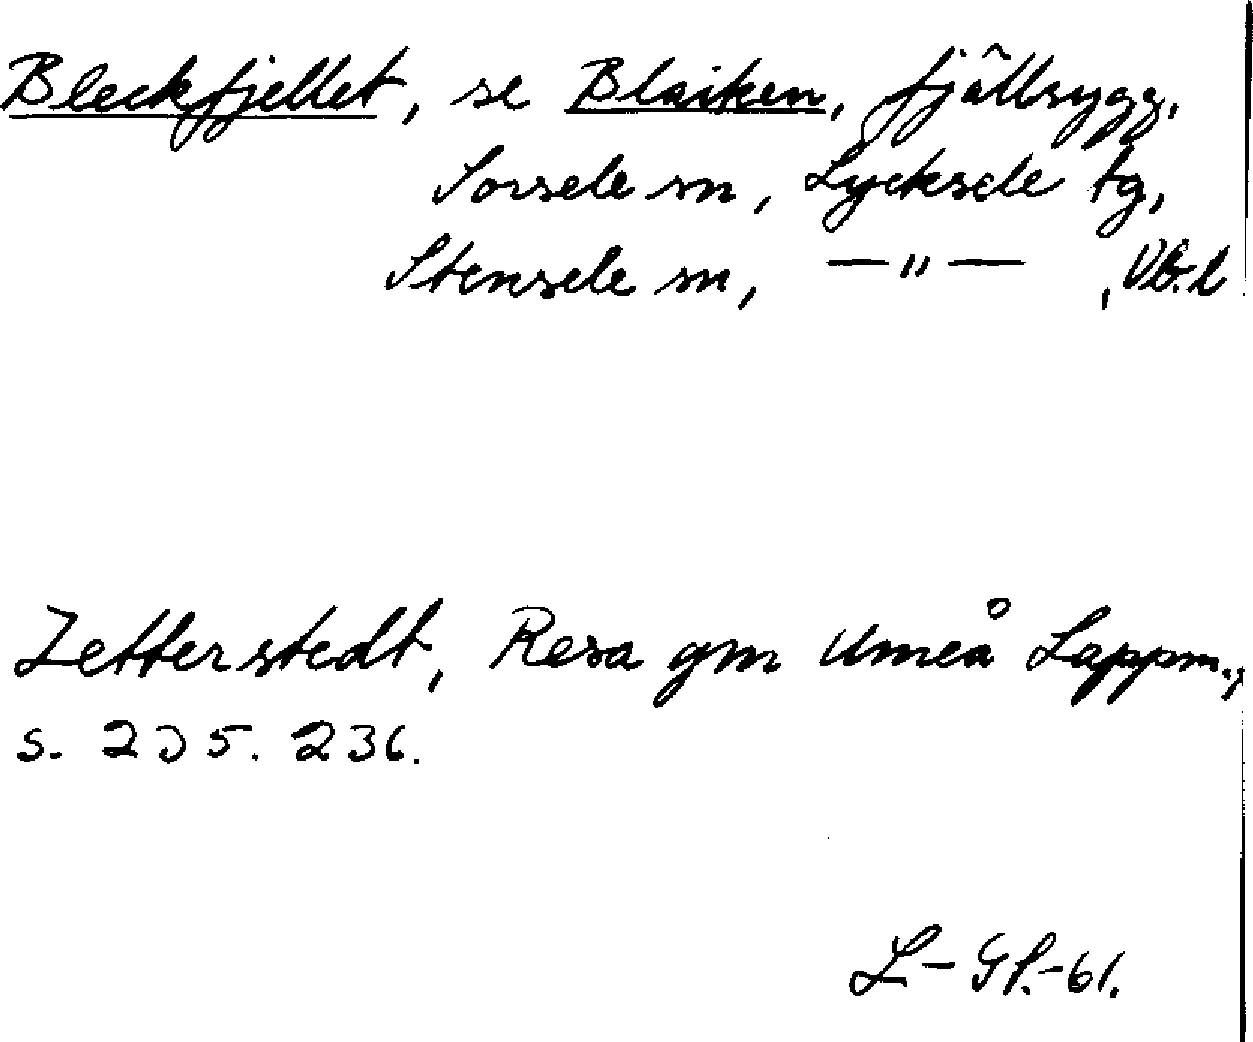 Bleckfjellet, se Blaiken, fjällrygg,
Sorsele sn, Lycksele tg,
Stensele sn, —"— , Vb. l
Zetterstedt, Resa gm Umeå Lappm.,
s. 235. 236.
L-Gf.-61.